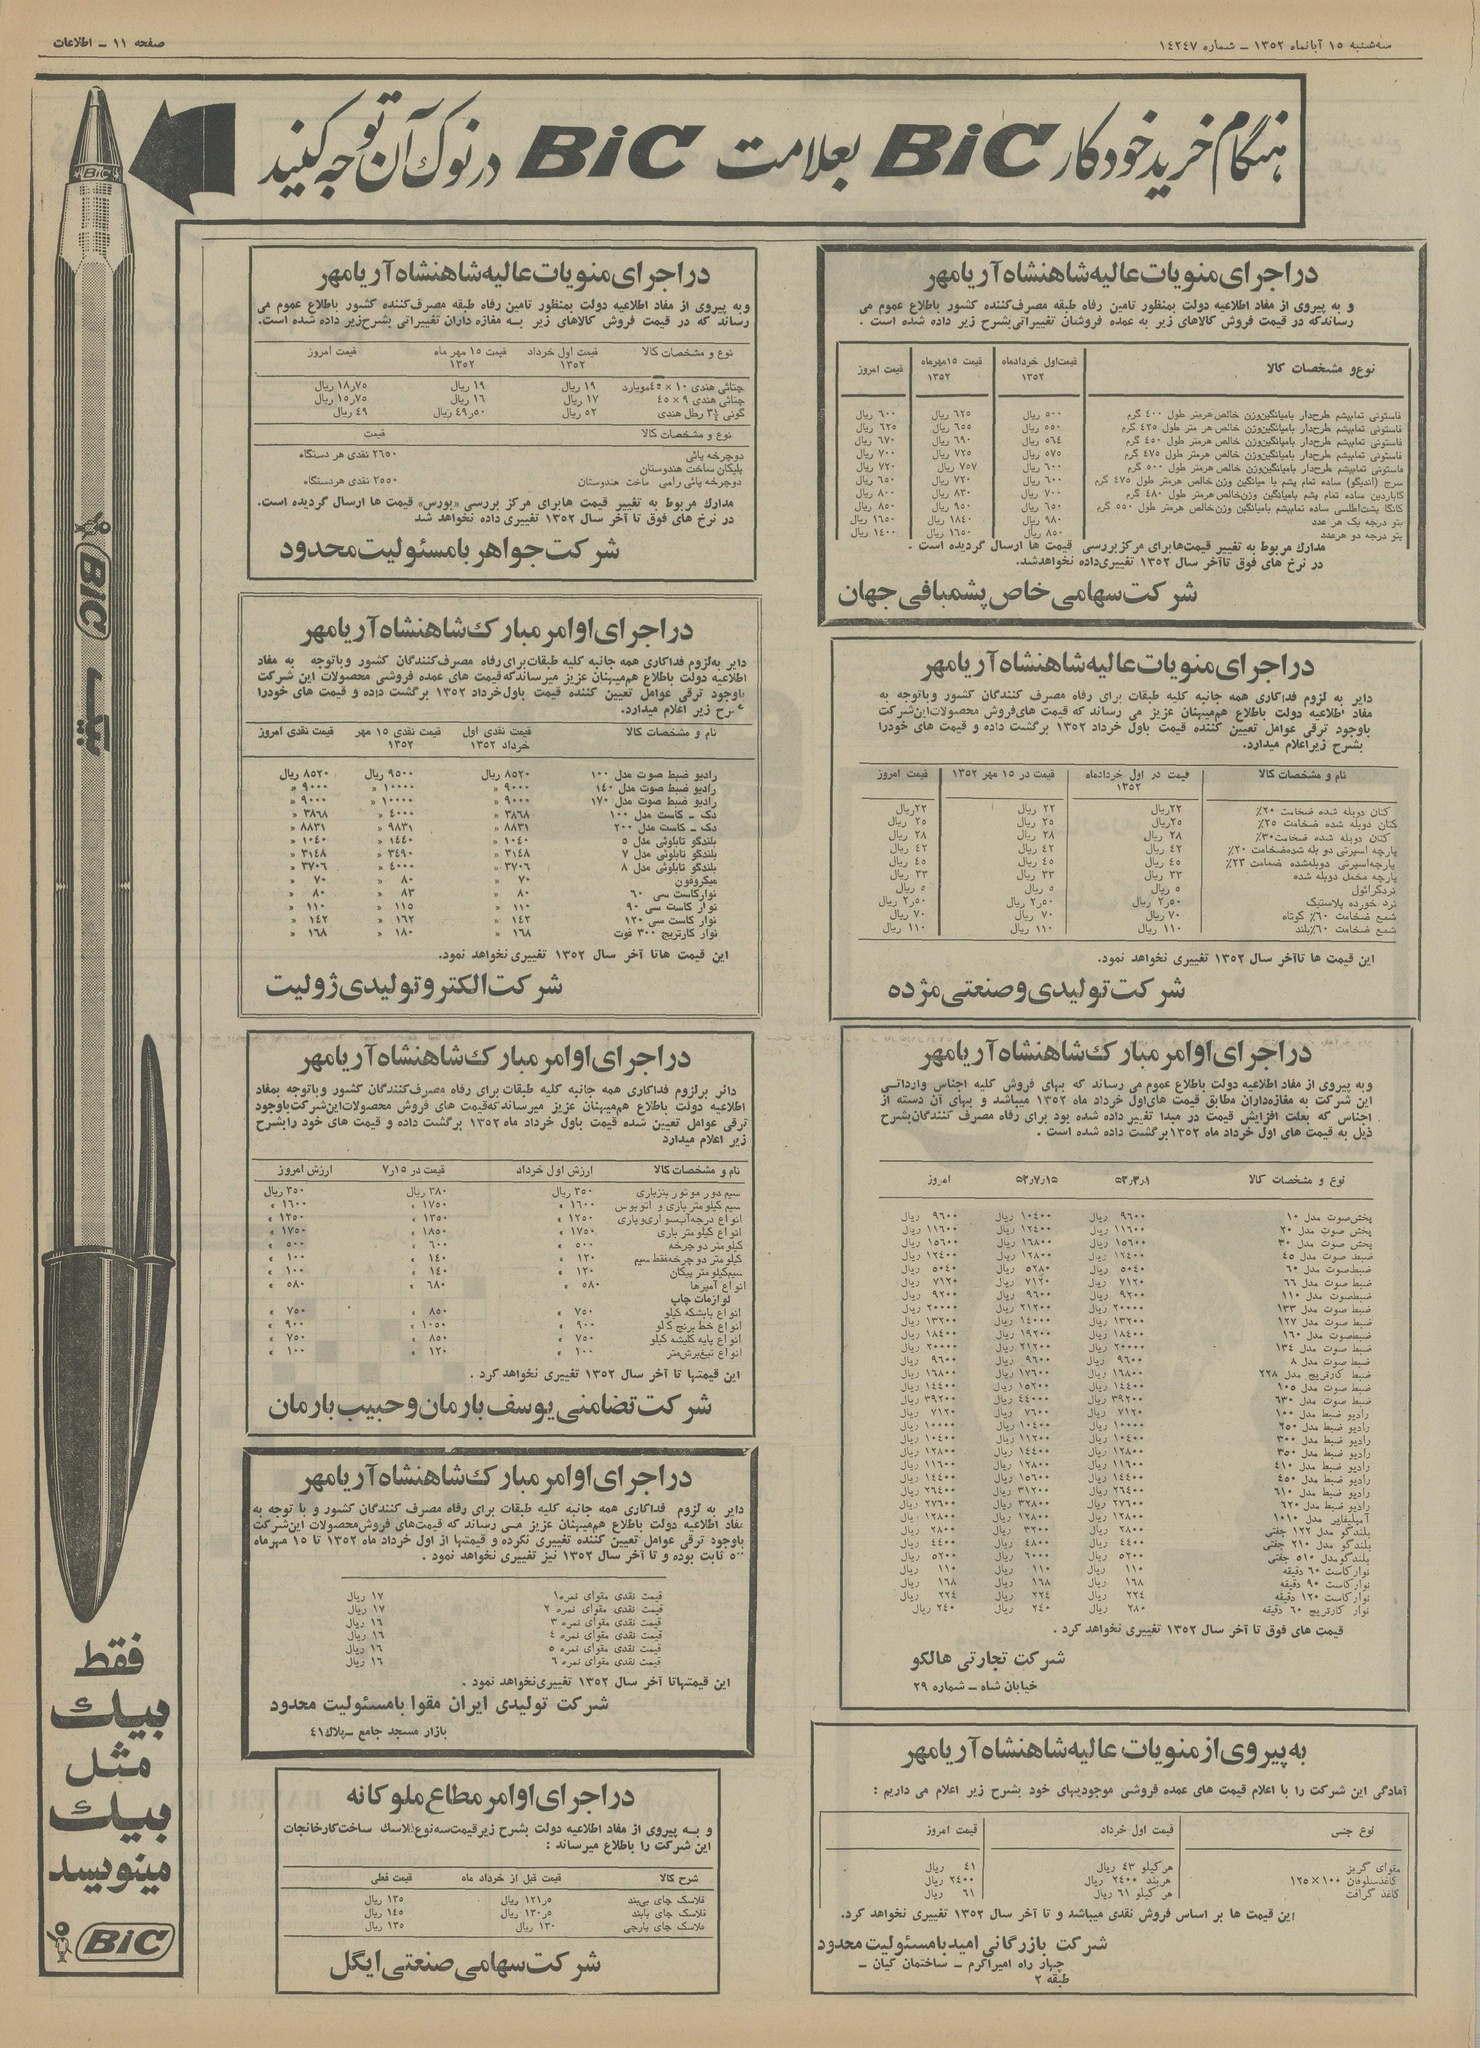 سه‌شنبه ۱۵ آبانماه ۱۳۵۲ ـ شماره ۱۴۲۴۷
صفحه ۱۱ ـ اطلاعات
هنگام خرید خودکار BiC بعلامت BiC در نوک آن توجه کنید
BiC
BiC بیک
فقط
بیك
مثل
بیك
مینویسد
BiC
در اجرای منویات عالیه شاهنشاه آریامهر
و به پیروی از مفاد اطلاعیه دولت بمنظور تامین رفاه طبقه مصرف‌کننده کشور باطلاع عموم می
رساندکه در قیمت فروش کالاهای زیر به عمده فروشان تغییراتی بشرح زیر داده شده است .
نوع و مشخصات کالا قیمت اول خردادماه ۱۳۵۲ قیمت ۱۵ مهرماه ۱۳۵۲ قیمت امروز
فاستونی تمام‌پشم طرح‌دار بامیانگین‌وزن خالص هرمتر طول ۴۰۰ گرم ۵۰۰ ریال ۶۲۵ ریال ۶۰۰ ریال
فاستونی تمام‌پشم طرح‌دار بامیانگین‌وزن خالص هر متر طول ۴۲۵ گرم ۵۵۰ ریال ۶۵۵ ریال ۶۲۵ ریال
فاستونی تمام‌پشم طرح‌دار بامیانگین‌وزن خالص هرمتر طول ۴۵۰ گرم ۵۶۴ ریال ۶۹۰ ریال ۶۷۰ ریال
فاستونی تمام‌پشم طرح‌دار بامیانگین‌وزن خالص هرمتر طول ۴۷۵ گرم ۵۷۵ ریال ۷۲۵ ریال ۷۰۰ ریال
فاستونی تمام‌پشم طرح‌دار بامیانگین‌وزن خالص هرمتر طول ۵۰۰ گرم ۶۰۰ ریال ۷۵۷ ریال ۷۲۰ ریال
سرج (اندیگو) ساده تمام پشم با میانگین وزن خالص هرمتر طول ۴۷۵ گرم ۶۰۰ ریال ۷۲۰ ریال ۶۵۰ ریال
گاباردین ساده تمام پشم بامیانگین وزن‌خالص هرمتر طول ۴۸۰ گرم ۷۰۰ ریال ۸۳۰ ریال ۸۰۰ ریال
کانگا پشت‌اطلسی ساده تمام‌پشم بامیانگین وزن‌خالص هرمتر طول ۵۵۰ گرم ۶۵۰ ریال ۹۵۰ ریال ۸۵۰ ریال
پتو درجه یک هر عدد ۹۸۰ ریال ۱۸۴۰ ریال ۱۶۵۰ ریال
پتو درجه دو هرعدد ۸۵۰ ریال ۱۶۵۰ ریال ۱۴۰۰ ریال
مدارك مربوط به تغییر قیمت‌هابرای مرکزبررسی قیمت ها ارسال گردیده است .
در نرخ های فوق تاآخر سال ۱۳۵۲ تغییری‌داده نخواهدشد.
شرکت سهامی خاص پشمبافی جهان
در اجرای منویات عالیه شاهنشاه آریامهر
دایر به لزوم فداکاری همه جانبه کلیه طبقات برای رفاه مصرف کنندگان کشور وباتوجه به
مفاد اطلاعیه دولت باطلاع هم‌میهنان عزیز می رساند که قیمت های‌فروش محصولات‌این‌شرکت
باوجود ترقی عوامل تعیین کننده قیمت باول خرداد ۱۳۵۲ برگشت داده و قیمت های خودرا
بشرح زیراعلام میدارد.
نام و مشخصات کالا قیمت در اول خردادماه ۱۳۵۲ قیمت در ۱۵ مهر ۱۳۵۲ قیمت امروز
کتان دوبله شده ضخامت ۲۰٪ ۲۲ریال ۲۲ ریال ۲۲ریال
کتان دوبله شده ضخامت ۲۵٪ ۲۵ریال ۲۵ ریال ۲۵ ریال
کتان دوبله شده ضخامت۳۰٪ ۲۸ ریال ۲۸ ریال ۲۸ ریال
پارچه اسپرتی دو بله شده‌ضخامت ۲۰٪ ۴۲ ریال ۴۲ ریال ۴۲ ریال
پارچه‌اسپرتی دوبله‌شده ضخامت ۲۳٪ ۴۵ ریال ۴۵ ریال ۴۵ ریال
پارچه مخمل دوبله شده ۳۳ ریال ۳۳ ریال ۳۳ ریال
نردگرانول ۵ ریال ۵ ریال ۵ ریال
نرد خورده پلاستیک ۲٫۵۰ ریال ۲٫۵۰ ریال ۲٫۵۰ ریال
شمع ضخامت ۶۰٪ کوتاه ۷۰ ریال ۷۰ ریال ۷۰ ریال
شمع ضخامت ۶۰٪بلند ۱۱۰ ریال ۱۱۰ ریال ۱۱۰ ریال
این قیمت ها تاآخر سال ۱۳۵۲ تغییری نخواهد نمود.
شرکت تولیدی و صنعتی مژده
در اجرای اوامر مبارك شاهنشاه آریامهر
وبه پیروی از مفاد اطلاعیه دولت باطلاع عموم می رساند که بهای فروش کلیه اجناس وارداتـی
این شرکت به مغازه‌داران مطابق قیمت های‌اول خرداد ماه ۱۳۵۲ میباشد و بهای آن دسته از
اجناس که بعلت افزایش قیمت در مبدا تغییر داده شده بود برای رفاه مصرف کنندگان‌بشرح
ذیل به قیمت های اول خرداد ماه ۱۳۵۲برگشت داده شده است .
نوع و مشخصات کالا ۵۲٫۳٫۱ ۵۲٫۷٫۱۵ امروز
پخش‌صوت مدل ۱۰ ۹۶۰۰ ریال ۱۰۴۰۰ ریال ۹۶۰۰ ریال
پخش صوت مدل ۲۰ ۱۱۶۰۰ ریال ۱۲۴۰۰ ریال ۱۱۶۰۰ ریال
پخش صوت مدل ۳۰ ۱۵۶۰۰ ریال ۱۶۸۰۰ ریال ۱۵۶۰۰ ریال
ضبط صوت مدل ۴۵ ۱۲۴۰۰ ریال ۱۲۸۰۰ ریال ۱۲۴۰۰ ریال
ضبط‌صوت مدل ۶۰ ۵۰۴۰ ریال ۵۲۸۰ ریال ۵۰۴۰ ریال
ضبط صوت مدل ۶۶ ۷۱۲۰ ریال ۷۱۲۰ ریال ۷۱۲۰ ریال
ضبطصوت مدل ۱۱۰ ۹۲۰۰ ریال ۹۶۰۰ ریال ۹۲۰۰ ریال
ضبط صوت مدل ۱۳۳ ۲۰۰۰۰ ریال ۲۱۲۰۰ ریال ۲۰۰۰۰ ریال
ضبط صوت مدل ۱۲۷ ۱۳۲۰۰ ریال ۱۴۰۰۰ ریال ۱۳۲۰۰ ریال
ضبط‌صوت مدل ۱۶۰ ۱۸۴۰۰ ریال ۱۹۲۰۰ ریال ۱۸۴۰۰ ریال
ضبط صوت مدل ۱۳۴ ۲۰۰۰۰ ریال ۲۱۲۰۰ ریال ۲۰۰۰۰ ریال
ضبط صوت مدل ۸ ۹۶۰۰ ریال ۹۶۰۰ ریال ۹۶۰۰ ریال
ضبط کارتریج مدل ۲۲۸ ۱۶۸۰۰ ریال ۱۷۶۰۰ ریال ۱۶۸۰۰ ریال
ضبط صوت مدل ۱۰۵ ۱۴۴۰۰ ریال ۱۵۲۰۰ ریال ۱۴۴۰۰ ریال
ضبط صوت مدل ۶۳۰ ۳۹۲۰۰ ریال ۴۴۰۰۰ ریال ۳۹۲۰۰ ریال
رادیو ضبط مدل ۱۰۰ ۷۱۲۰ ریال ۷۶۰۰ ریال ۷۱۲۰ ریال
رادیو ضبط مدل ۲۵۰ ۱۰۰۰۰ ریال ۱۰۴۰۰ ریال ۱۰۰۰۰ ریال
رادیو ضبط مدل ۳۰۰ ۱۰۴۰۰ ریال ۱۱۲۰۰ ریال ۱۰۴۰۰ ریال
رادیو ضبط مدل ۳۵۰ ۱۲۸۰۰ ریال ۱۴۴۰۰ ریال ۱۲۸۰۰ ریال
رادیو ضبط مدل ۴۱۰ ۱۱۶۰۰ ریال ۱۲۸۰۰ ریال ۱۱۶۰۰ ریال
رادیو ضبط مدل ۴۵۰ ۱۴۴۰۰ ریال ۱۵۶۰۰ ریال ۱۴۴۰۰ ریال
رادیو ضبط مدل ۶۱۰ ۲۶۴۰۰ ریال ۳۱۲۰۰ ریال ۲۶۴۰۰ ریال
رادیو ضبط مدل ۶۲۰ ۲۷۶۰۰ ریال ۳۲۸۰۰ ریال ۲۷۶۰۰ ریال
آمپلیفایر مدل ۱۰۱۰ ۱۲۸۰۰ ریال ۱۲۸۰۰ ریال ۱۲۸۰۰ ریال
بلندگو مدل ۱۲۲ جفتی ۲۸۰۰ ریال ۳۲۰۰ ریال ۲۸۰۰ ریال
بلندگو مدل ۲۱۰ جفتی ۴۴۰۰ ریال ۴۸۰۰ ریال ۴۴۰۰ ریال
بلندگومدل ۵۱۰ جفتی ۵۲۰۰ ریال ۶۰۰۰ ریال ۵۲۰۰ ریال
نوارکاست ۶۰ دقیقه ۱۱۰ ریال ۱۱۰ ریال ۱۱۰ ریال
نوارکاست ۹۰ دقیقه ۱۶۸ ریال ۱۶۸ ریال ۱۶۸ ریال
نوارکاست ۱۲۰ دقیقه ۲۲۴ ریال ۲۲۴ ریال ۲۲۴ ریال
نوار کارتریج ۶۰ دقیقه ۲۸۰ ریال ۲۴۰ ریال ۲۴۰ ریال
قیمت های فوق تا آخر سال ۱۳۵۲ تغییری نخواهد کرد .
شرکت تجارتی هالکو
خیابان شاه ـ شماره ۲۹
به پیروی از منویات عالیه شاهنشاه آریامهر
آمادگی این شرکت را با اعلام قیمت های عمده فروشی موجودیهای خود بشرح زیر اعلام می داریم :
نوع جنس قیمت اول خرداد قیمت امروز
مقوای گریز هرکیلو ۴۳ ریال ۴۱ ریال
کاغذسلوفان ۱۰۰×۱۲۵ هربند ۲۴۰۰ ریال ۲۴۰۰ ریال
کاغذ گرافت هر کیلو ۶۱ ریال ۶۱ ریال
این قیمت ها بر اساس فروش نقدی میباشد و تا آخر سال ۱۳۵۲ تغییری نخواهد کرد.
شرکت بازرگانی امید بامسئولیت محدود
چهار راه امیراکرم ـ ساختمان کیان ـ
طبقه ۲
در اجرای منویات عالیه شاهنشاه آریامهر
وبه پیروی از مفاد اطلاعیه دولت بمنظور تامین رفاه طبقه مصرف‌کننده کشور باطلاع عموم می
رساند که در قیمت فروش کالاهای زیر بـه مغازه داران تغییراتی بشرح‌زیر داده شده است.
نوع و مشخصات کالا قیمت اول خرداد ۱۳۵۲ قیمت ۱۵ مهر ماه ۱۳۵۲ قیمت امروز
چتائی هندی ۱۰ × ۴۵موبارد ۱۹ ریال ۱۹ ریال ۱۸٫۷۵ ریال
چتائی هندی ۹ × ۴۵ ۱۷ ریال ۱۶ ریال ۱۵٫۷۵ ریال
گونی ۳¼ رطل هندی ۵۲ ریال ۴۹٫۵۰ ریال ۴۹ ریال
نوع و مشخصات کالا قیمت
دوچرخه پائی ۲۶۵۰ نقدی هر دستگاه
پلیکان ساخت هندوستان
دوچرخه پائی رامی ساخت هندوستان ۲۵۵۰ نقدی هردستگاه
مدارك مربوط به تغییر قیمت هابرای مرکز بررسی «بورس» قیمت ها ارسال گردیده است.
در نرخ های فوق تا آخر سال ۱۳۵۲ تغییری داده نخواهد شد
شرکت جواهر بامسئولیت محدود
در اجرای اوامر مبارك شاهنشاه آریامهر
دایر به‌لزوم فداکاری همه جانبه کلیه طبقات‌برای رفاه مصرف‌کنندگان کشور وباتوجه به مفاد
اطلاعیه دولت باطلاع هم‌میهنان عزیز میرساندکه‌قیمت های عمده فروشی محصولات این شرکت
باوجود ترقی عوامل تعیین کننده قیمت باول‌خرداد ۱۳۵۲ برگشت داده و قیمت های خودرا
بشرح زیر اعلام میدارد.
نام و مشخصات کالا قیمت نقدی اول خرداد ۱۳۵۲ قیمت نقدی ۱۵ مهر ۱۳۵۲ قیمت نقدی امروز
رادیو ضبط صوت مدل ۱۰۰ ۸۵۲۰ ریال ۹۵۰۰ ریال ۸۵۲۰ ریال
رادیو ضبط صوت مدل ۱۴۰ ۹۰۰۰ « ۱۰۰۰۰ « ۹۰۰۰ «
رادیو ضبط صوت مدل ۱۷۰ ۹۰۰۰ « ۱۰۰۰۰ « ۹۰۰۰ «
دک ـ کاست مدل ۱۰۰ ۳۸۶۸ « ۴۰۰۰ « ۳۸۶۸ «
دک ـ کاست مدل ۲۰۰ ۸۸۳۱ « ۹۸۳۱ « ۸۸۳۱ «
بلندگو تابلوئی مدل ۵ ۱۰۴۰ « ۱۴۴۰ « ۱۰۴۰ «
بلندگو تابلوئی مدل ۷ ۳۱۴۸ « ۳۴۹۰ « ۳۱۴۸ «
بلندگو تابلوئی مدل ۸ ۳۷۰۶ « ۴۰۰۰ « ۳۷۰۶ «
میگروفون ۷۰ « ۸۰ « ۷۰ «
نوارکاست سی ۶۰ ۸۰ « ۸۳ « ۸۰ «
نوار کاست سی ۹۰ ۱۱۰ « ۱۱۵ « ۱۱۰ «
نوار کاست سی ۱۲۰ ۱۴۲ « ۱۶۲ « ۱۴۲ «
نوار کارتریج ۳۰۰ فوت ۱۶۸ « ۱۸۰ « ۱۶۸ «
این قیمت هاتا آخر سال ۱۳۵۲ تغییری نخواهد نمود.
شرکت الکترو تولیدی ژولیت
در اجرای اوامر مبارك شاهنشاه آریامهر
دائر برلزوم فداکاری همه جانبه کلیه طبقات برای رفاه مصرف‌کنندگان کشور وباتوجه بمفاد
اطلاعیه دولت باطلاع هم‌میهنان عزیز میرساندکه‌قیمت های فروش محصولات‌این‌شرکت‌باوجود
ترقی عوامل تعیین شده قیمت باول خرداد ماه ۱۳۵۲ برگشت داده و قیمت های خود رابشرح
زیر اعلام میدارد
نام و مشخصات کالا ارزش اول خرداد قیمت در ۷٫۱۵ ارزش امروز
سیم دور موتور بنزباری ۳۵۰ ریال ۳۸۰ ریال ۳۵۰ ریال
سیم کیلومتر باری و اتوبوس ۱۶۰۰ » ۱۷۵۰ » ۱۶۰۰ »
انواع درجه‌آب‌سواری‌وباری ۱۲۵۰ » ۱۳۵۰ » ۱۲۵۰ »
انواع کیلومتر باری ۱۷۵۰ » ۱۸۵۰ » ۱۷۵۰ »
کیلومتر دوچرخه ۵۰۰ » ۶۰۰ » ۵۰۰ »
کیلومتر دو چرخه‌فقط سیم ۱۲۰ » ۱۴۰ » ۱۰۰ »
سیم‌کیلومتر پیکان ۱۲۰ » ۱۴۰ » ۱۰۰ »
انواع آمپرها ۵۸۰ » ۶۸۰ » ۵۸۰ »
لوازمات چاپ
انواع بابشکه کیلو ۷۵۰ » ۸۵۰ » ۷۵۰ »
انواع خط برنج کیلو ۹۰۰ » ۱۰۵۰ » ۹۰۰ »
انواع پایه کلیشه کیلو ۷۵۰ » ۸۵۰ » ۷۵۰ »
انواع تیغ‌برش‌متر ۱۰۰ » ۱۲۰ » ۱۰۰ »
این قیمتها تا آخر سال ۱۳۵۲ تغییری نخواهد کرد .
شرکت تضامنی یوسف بارمان و حبیب بارمان
در اجرای اوامر مبارك شاهنشاه آریامهر
دایر به لزوم فداکاری همه جانبه کلیه طبقات برای رفاه مصرف کنندگان کشور و با توجه به
مفاد اطلاعیه دولت باطلاع هم‌میهنان عزیز مـی رساند که قیمت‌های فروش‌محصولات این‌شرکت
باوجود ترقی عوامل تعیین کننده تغییری نکرده و قیمتها از اول خرداد ماه ۱۳۵۲ تا ۱۵ مهرماه
ثابت بوده و تا آخر سال ۱۳۵۲ نیز تغییری نخواهد نمود .
قیمت نقدی مقوای نمره۱ ۱۷ ریال
قیمت نقدی مقوای نمره ۲ ۱۷ ریال
قیمت نقدی مقوای نمره ۳ ۱۶ ریال
قیمت نقدی مقوای نمره ۴ ۱۶ ریال
قیمت نقدی مقوای نمره ۵ ۱۶ ریال
قیمت نقدی مقوای نمره ۶ ۱۶ ریال
این قیمتهاتا آخر سال ۱۳۵۲ تغییری‌نخواهد نمود .
شرکت تولیدی ایران مقوا بامسئولیت محدود
بازار مسجد جامع ـپلاك۴۱
در اجرای اوامر مطاع ملوکانه
و بـه پیروی از مفاد اطلاعیه دولت بشرح زیرقیمت‌سه‌نوع‌فلاسك ساخت‌کارخانجات
این شرکت را باطلاع میرساند :
شرح کالا قیمت قبل از خرداد ماه قیمت فعلی
فلاسک چای بی‌بند ۱۲۱٫۵ ریال ۱۳۵ ریال
فلاسک چای بابند ۱۳۰٫۵ ریال ۱۴۵ ریال
فلاسک چای پارچی ۱۳۰ ریال ۱۳۵ ریال
شرکت سهامی صنعتی ایگل